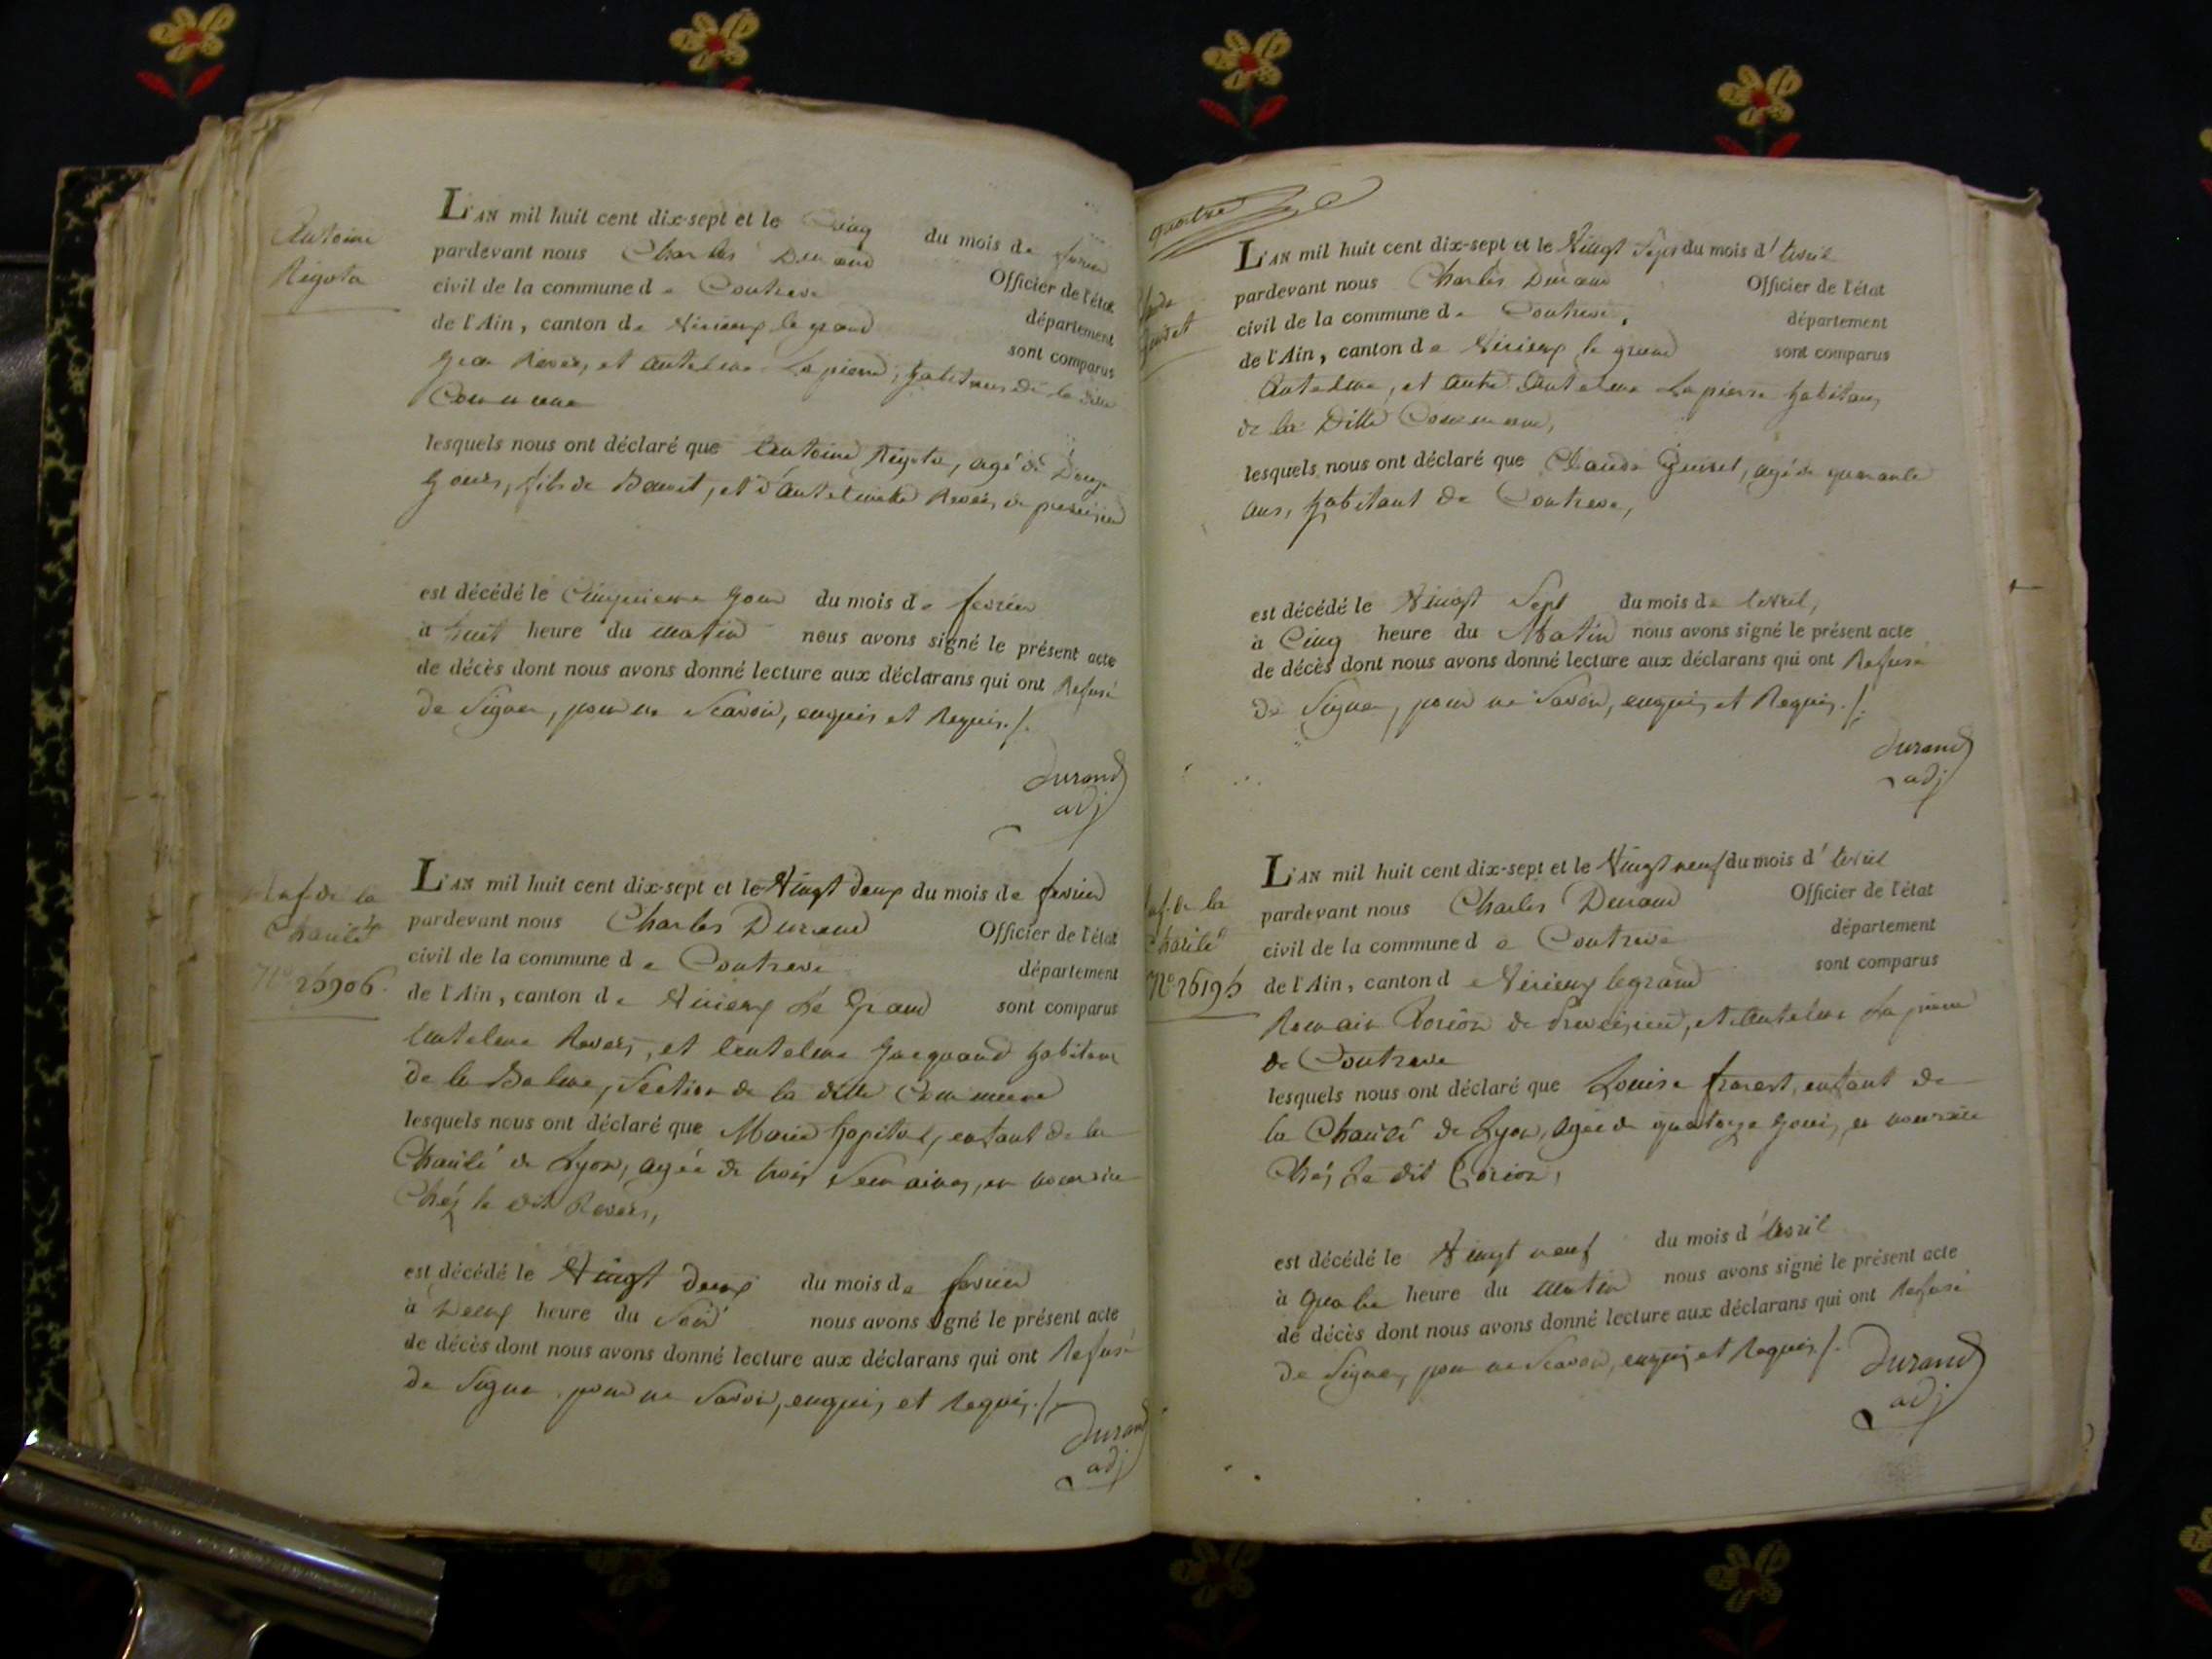 Antoine
Rigota
L'AN mil huit cent dix-sept et le Cinq du mois de fevrier
pardevant nous Charles Durand Officier de l'état
civil de la commune de Contrevo département
de l'Ain, canton de Virieux le grand sont comparus
et Antelme Lapierre, habitans de la ditte
Commune
lesquels nous ont déclaré que Antoine Rigota, agé de Douze
Jours, fils de Benoit, et d'Antelmette de
est décédé le Cinquieme Jour du mois de fevrier
à huit heure du matin nous avons signé le présent acte
de décès dont nous avons donné lecture aux déclarans qui ont Refusé
de Signer, pour ne Scavoir, enquis et Requis./.
Durand
adj
Enf. de la
Charité
N° 25906.
L'AN mil huit cent dix-sept et le Vingt deux du mois de fevrier
pardevant nous Charles Durand Officier de l'état
civil de la commune de Contrevo département
de l'Ain, canton de Virieux Le Grand sont comparus
Antelme et Antelme Jacquand habitans
de la Balme, Section de la ditte Commune
lesquels nous ont déclaré que Marie hopital, enfant de la
Charité de Lyon, agée de trois Semaines, en nourrice
Chés le dit
est décédé le Vingt deux du mois de fevrier
à Deux heure du Soir nous avons signé le présent acte
de décès dont nous avons donné lecture aux déclarans qui ont Refusé
de Signer pour ne Savoir, enquis et Requis./.
Durand
adj
quatre
L'AN mil huit cent dix-sept et le Vingt Sept du mois d'Avril
pardevant nous Charles Durand Officier de l'état
civil de la commune de Contrevo, département
de l'Ain, canton de Virieux le grand sont comparus
Antelme, et autre Antelme Lapierre habitans
de la Ditte Commune,
lesquels nous ont déclaré que Claude Guinet, agé de quarante
ans, habitant de Contrevo,
est décédé le Vingt Sept du mois de Avril,
à Cinq heure du Matin nous avons signé le présent acte
de décès dont nous avons donné lecture aux déclarans qui ont Refusé
de Signer, pour ne Savoir, enquis et Requis./.
Durand
adj
Enf. de la
Charité
N° 26195
L'AN mil huit cent dix-sept et le Vingt neuf du mois d'Avril
pardevant nous Charles Durand Officier de l'état
civil de la commune de Contrevo département
de l'Ain, canton de Virieux legrand sont comparus
Romain de et Antelme Lapierre
de Contrevo
lesquels nous ont déclaré que Louise enfant de
la Charité de Lyon, agée de quatorze Jours, en nourrice
Chés Le dit
est décédé le Vingt neuf du mois d'Avril
à quatre heure du matin nous avons signé le présent acte
de décès dont nous avons donné lecture aux déclarans qui ont Refusé
de Signer, pour ne Scavoir, enquis et Requis./.
Durand
adj